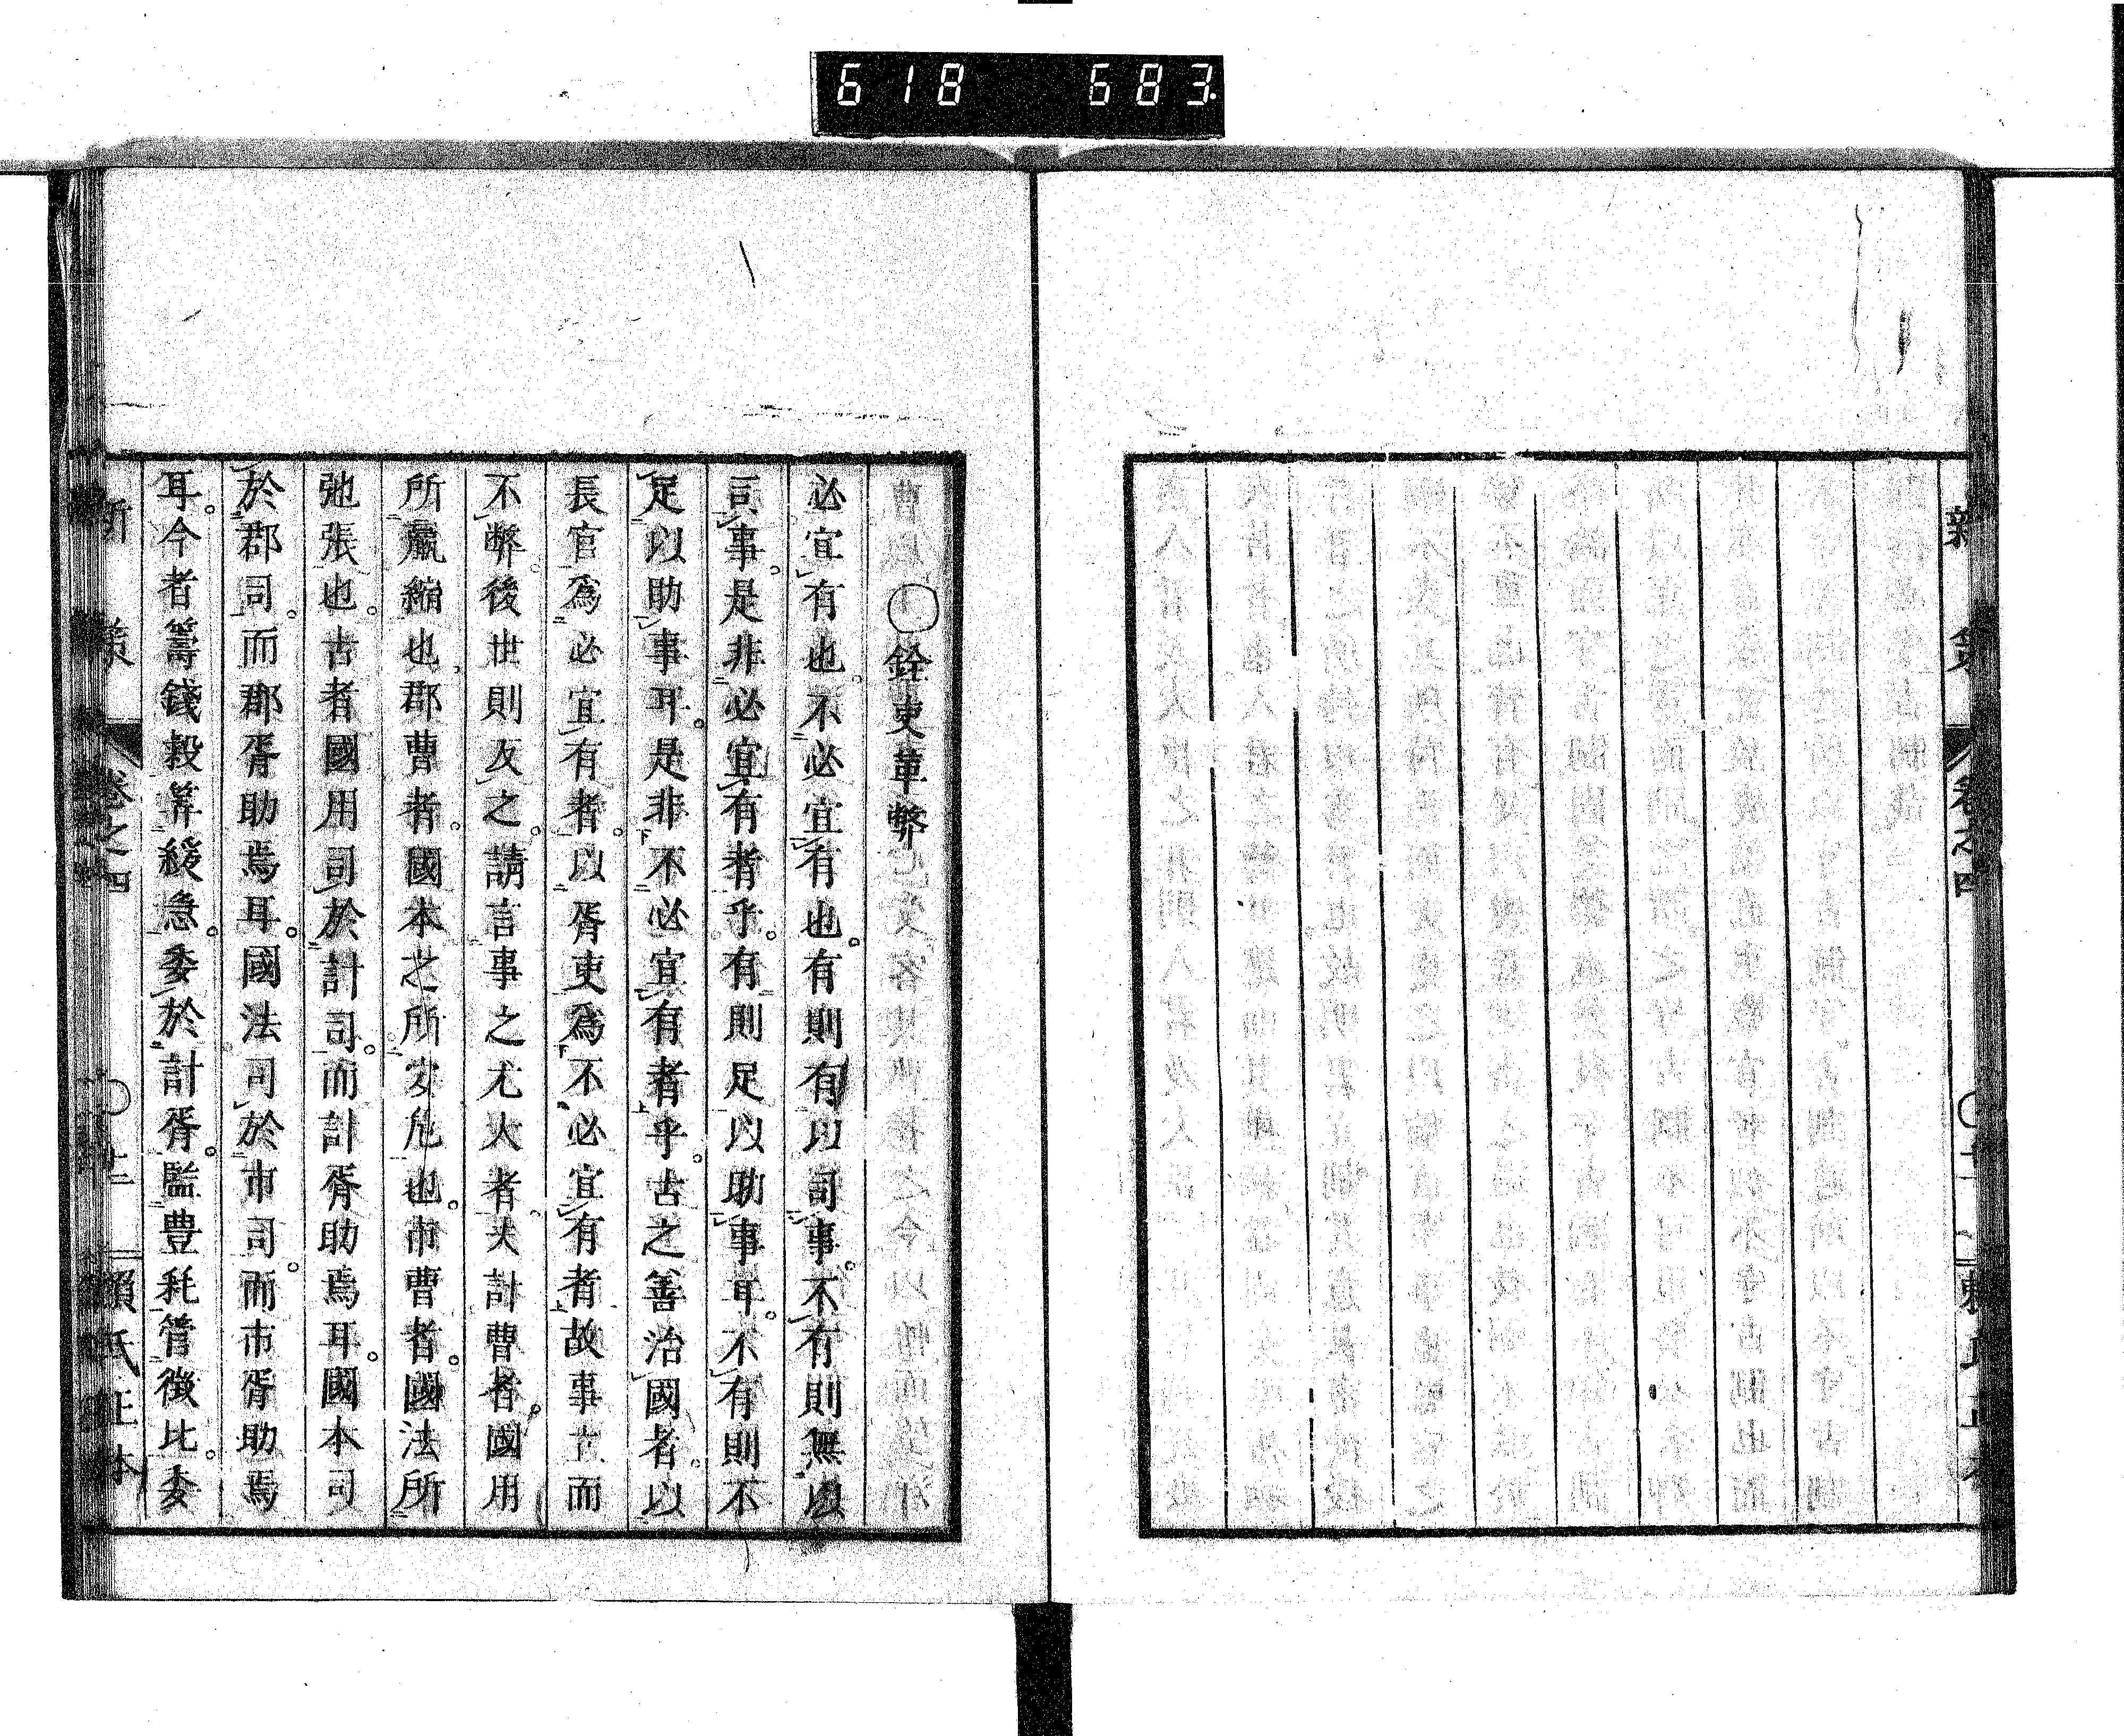 618 683
新策 卷之四
○銓吏革弊
必宜有也不必宜有也。有則有以司事。不有則無以
司事。是非必宜有者乎。有則足以助事耳。不有則不
足以助事耳。是非不必宜有者乎。古之善治國者。以
長官爲必宜有者。以胥吏爲不必宜有者故事立而
不弊。後世則反之。請言事之尤大者。夫計曹者。國用
所贏縮也、郡曹者。國本之所安危也。市曹者。國法所
弛張也。古者國用司於計司。而計胥助焉耳。國本司
於郡司。而郡胥助焉耳。國法司於市司。而市胥助焉
耳。今者籌錢穀筭緩急。委於計胥。監豐耗管徵比。委
新策 卷之四 賴氏正本